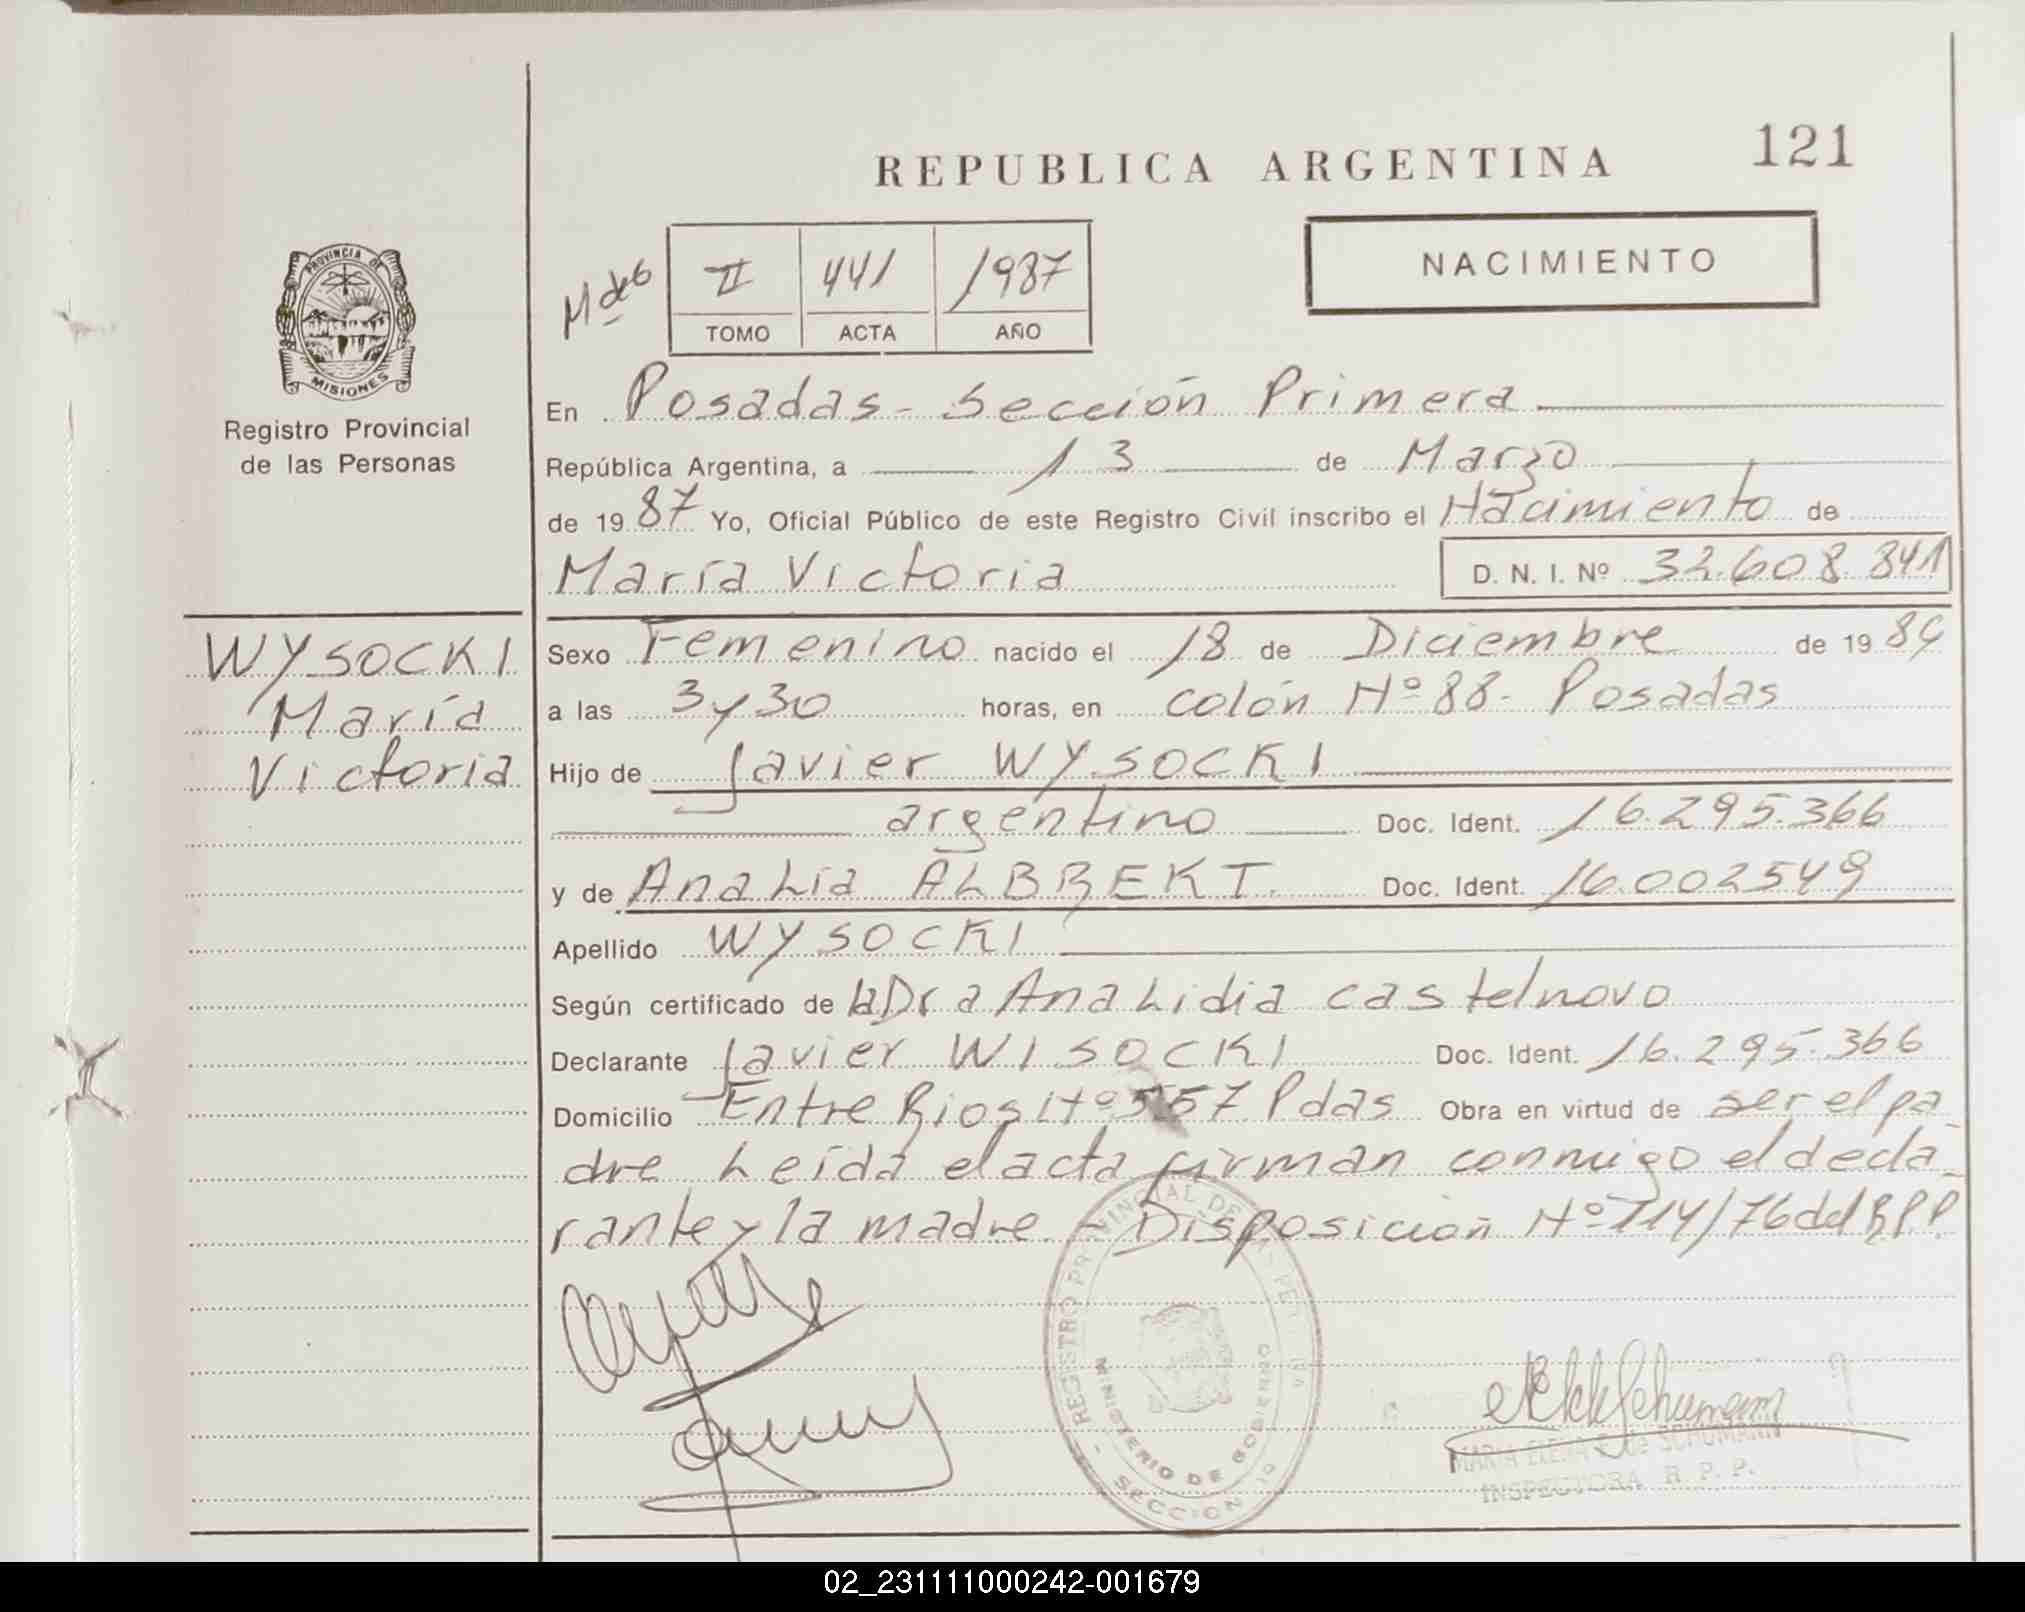 REPUBLICA ARGENTINA 121
NACIMIENTO
II 441 1987
TOMO ACTA AÑO
PROVINCIA DE
MISIONES
Registro Provincial
de las Personas
WYSOCKI
María
Victoria
En Posadas - Sección Primera
República Argentina, a 13 de Marzo
de 1987 Yo, Oficial Público de este Registro Civil inscribo el Nacimiento de
María Victoria D. N. I. Nº 32.608.841
Sexo Femenino nacido el 18 de Diciembre de 19
a las 3 y 30 horas, en Colón Nº 88- Posadas
Hijo de Javier WYSOCKI
argentino Doc. Ident. 16.295.366
y de Analía ALBREKT Doc. Ident. 16.002549
Apellido WYSOCKI
Según certificado de la Dra Ana Lidia Castelnovo
Declarante Javier WISOCKI Doc. Ident. 16.295.366
Domicilio Entre Rios Nº 557 Pdas Obra en virtud de ser el pa
dre Leída el acta firman conmigo el decla-
rante y la madre - Disposición Nº 114/76 del R.P.P.
REGISTRO PROVINCIAL DE LAS
MINISTERIO DE GOBIERNO
SECCION
MARIA ELENA de SCHUMANN
INSPECTORA R. P. P.
02_231111000242-001679